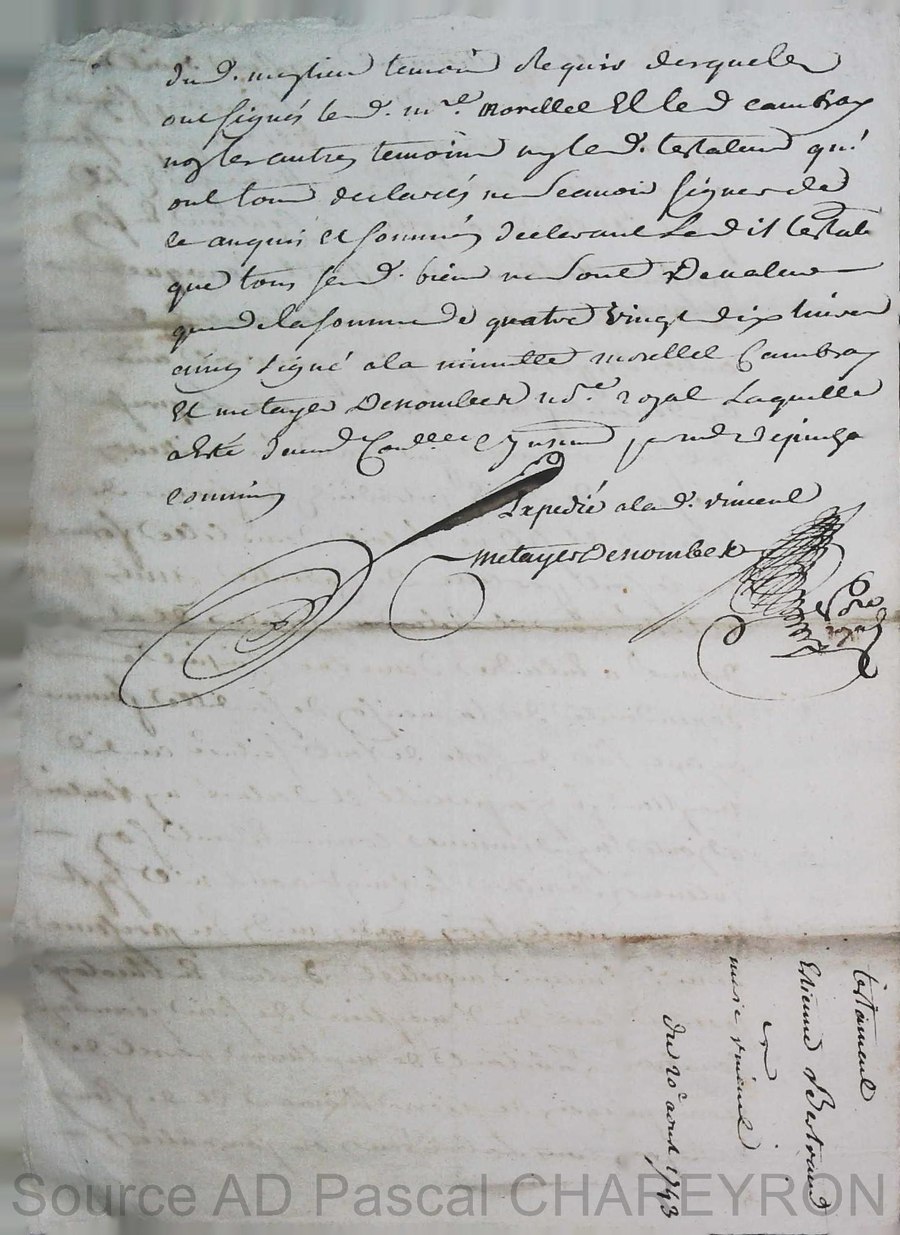 dud. mestien temoin Requis desquels
ont signés led. mre. morellet Et led cambray
ny les autres temoins ny led. testateur qui
ont tous declarés ne scauoir signer de
ce enquis et sommés declarant Ledit testat
que tous sesd. biens ne sont De valeur
que de la somme de quatre vingt dix livres
ainsi signé a la minutte morellet Cambray
Et metayer Denombet no.re royal Laquelle
a Esté
commis
Expedié a lad. vincent
metayer Denombet
no.re royal
testament
Estienne Bertrand
marie vincent
du 20e aout 1743
Source AD Pascal CHAREYRON